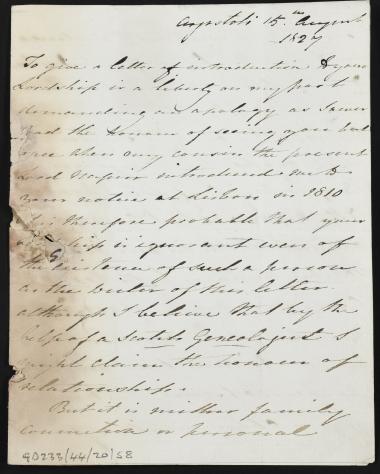 Argostoli 15th August
1827
To give a letter of introduction to your
Lordship is a liberty on my part
demanding an apology as I never
had the Honour of seeing you but
once when my cousin the present
Lord Napier introduced me to
your notice at Lisbon in 1810
it is therefore probable that your
Lordship is ignorant even of
the existence of such a person
as the writer of this letter.
although I believe that by the
help of a Scotch Genealogist I
might claim the honour of
relationship.
But it is neither family
connection or personal
GD233/44/20/58